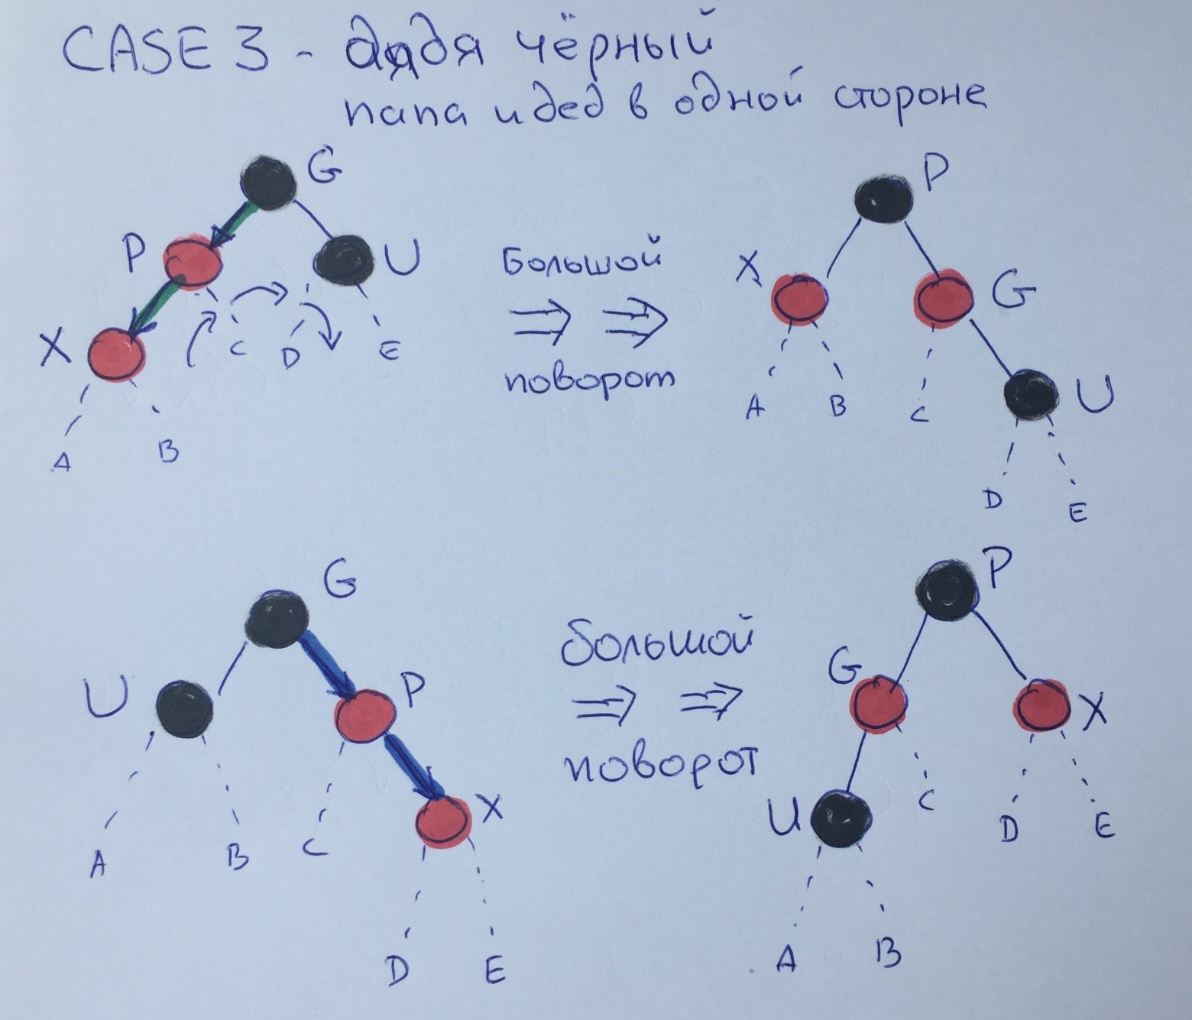 CASE 3 - дядя чёрный
папа и дед в одной стороне
G
P
U
X
C
D
E
A
B
Большой
поворот
P
X
G
A
B
C
U
D
E
G
U
P
X
A
B
C
D
E
большой
поворот
P
G
X
U
C
D
E
A
B